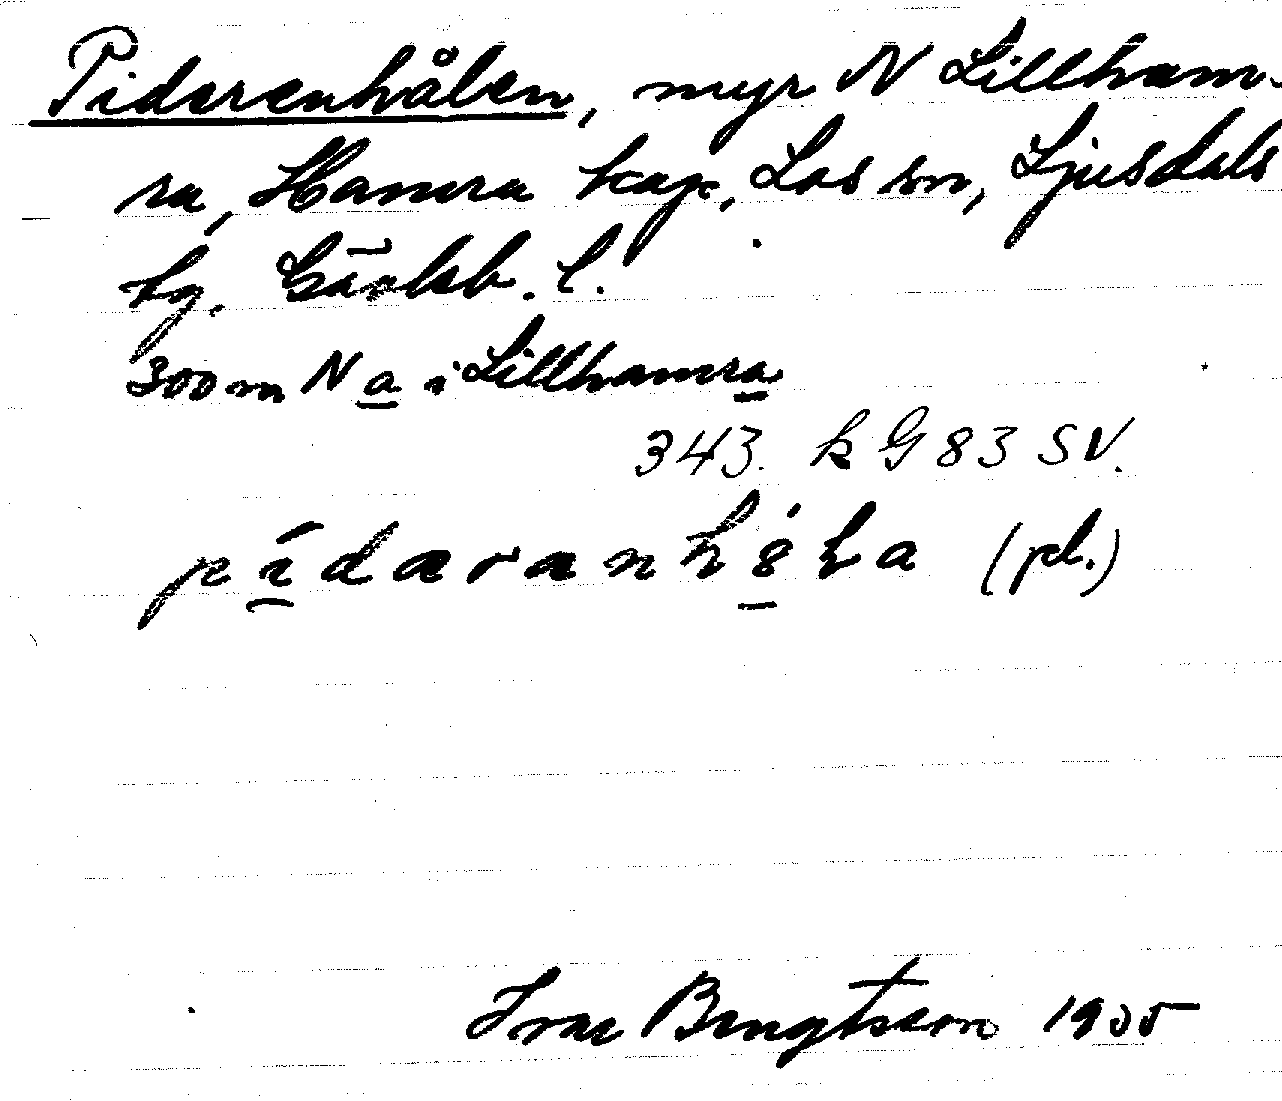 Pidarenhålen, myr N Lillham-
ra, Hamra kap, Los sn, Ljusdals
tg. Gävleb. l.
300 m N a i Lillhamra
343. k G 83 SV.
(pl.)
Ivar Bengtsson 1935